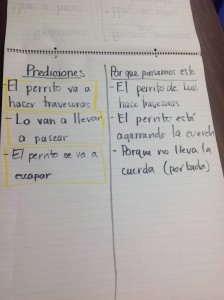 Predicciones
El perrito va a
hacer travesuras
- Lo van a llevar
a pasear
- El perrito se va a
escapar
Por que pensamos esto
- El perrito de Luis
hace travesuras
- El perrito está
agarrando la cuerda
- Porque no lleva la
cuerda (portada)